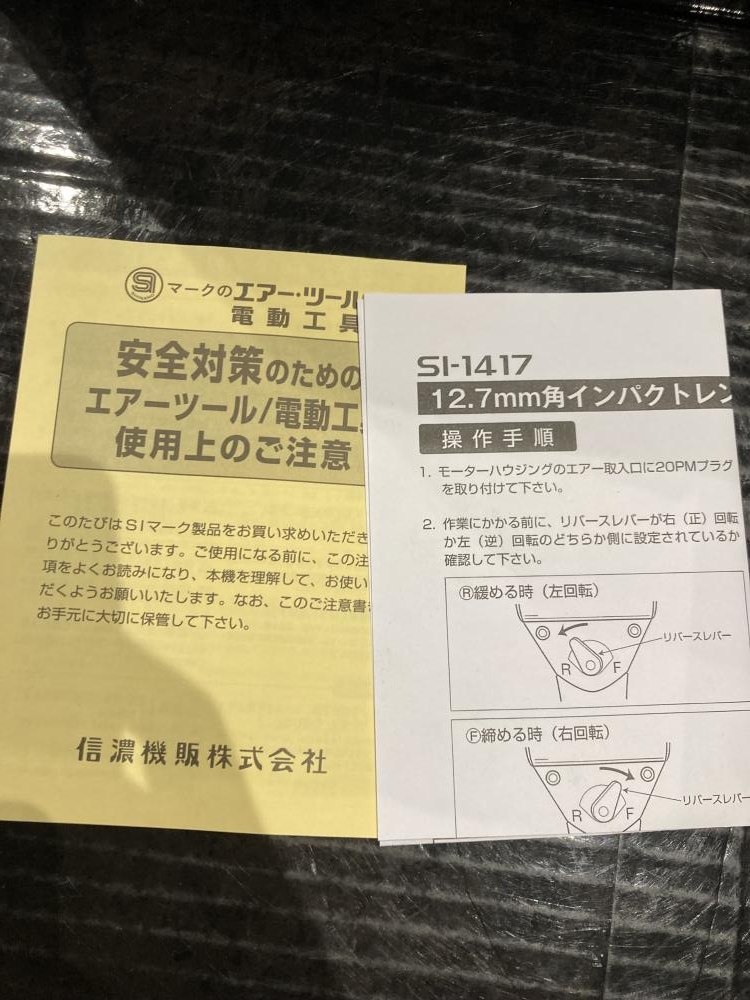 SI
マークのエアー・ツール
電動工具
安全対策のための
エアーツール/電動工
使用上のご注意
このたびはSIマーク製品をお買い求めいただき
りがとうございます。ご使用になる前に、この注
項をよくお読みになり、本機を理解して、お使い
だくようお願いいたします。なお、このご注意書
お手元に大切に保管して下さい。
信濃機販株式会社
SI-1417
12.7mm角インパクトレン
操作手順
1. モーターハウジングのエアー取入口に20PMプラグ
を取り付けて下さい。
2. 作業にかかる前に、リバースレバーが右(正)回転
か左(逆)回転のどちらか側に設定されているか
確認して下さい。
Ⓡ緩める時(左回転)
リバースレバー
R F
Ⓕ締める時(右回転)
リバースレバー
R F